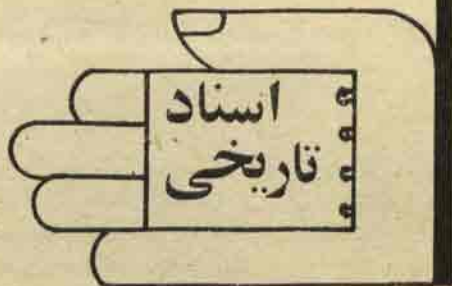 اسناد
تاریخی